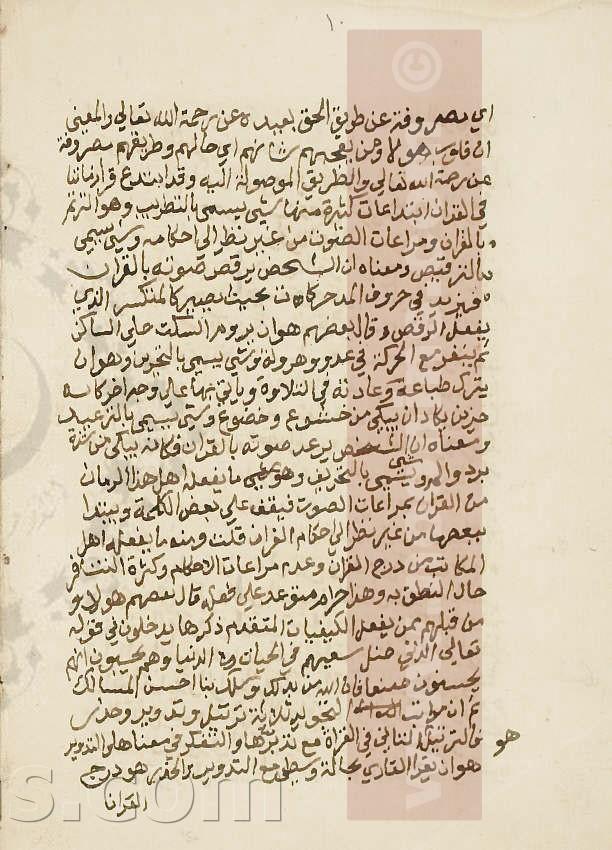 اي مصروفة عن طريق الحق بعيدة عن رحمة الله تعالي والمعني
ان قلوب هولاء ومن يعجبهم شانهم اي حالهم وطريقهم مصروفة
عن رحمة الله تعالي والطريق الموصولة اليه وقد ابتدع قراء زماننا
في القران ابتداعات كثيرة منها شي يسمي بالتطريب وهو الترنم
بالقران ومراعات الصوت من غير نظر الي احكامه وشي يسمي
بالترقيص ومعناه ان الشخص يرقص صوته بالقران
فيزيد في حروف المد حركات بحيث يصير كالمتكسر الذي
يفعل الرقص وقال بعضهم هو ان يروم السكت علي الساكن
ثم ينفر مع الحركة في عدو وهرولة وشي يسمي بالتحزين وهو ان
يترك طباعه وعادته في التلاوة وياتي بها علي وجه اخر كانه
حزين يكاد ان يبكي من خشوع وخضوع وشي يسمي بالترعيد
ومعناه ان الشخص يرعد صوته بالقران فكانه يبكي من شدة
برد والم وشي يسمي بالتحريف وهو ما يفعله اهل هذا الزمان
من القران بمراعات الصوت فيقف علي بعض الكلمة ويبتدا
ببعضها من غير نظر الي احكام القران قلت ومنه ما يفعله اهل
المكاتب من درج القران وعدم مراعات الاحكام وكثرة التنافر
حال النطق به وهذا حرام متوعد علي فعله قال بعضهم هولاء و
من قبلهم ممن يفعل الكيفيات المتقدم ذكرها يدخلون في قوله
تعالي الذين ضل سعيهم في الحيات الدنيا وهم يحسبون انهم
يحسنون صنعا الله من ذلك وسلك بنا احسن المسالك
ثم ان مراتب التجويد ثلاثة ترتيل وتدوير وحدر
فالترتيل التاني في القراة مع تدبرها والتفكر في معناها والتدوير هو
هو ان يقرا القاري بحالة وسطي مع التدوير والحدر هو درج
القران